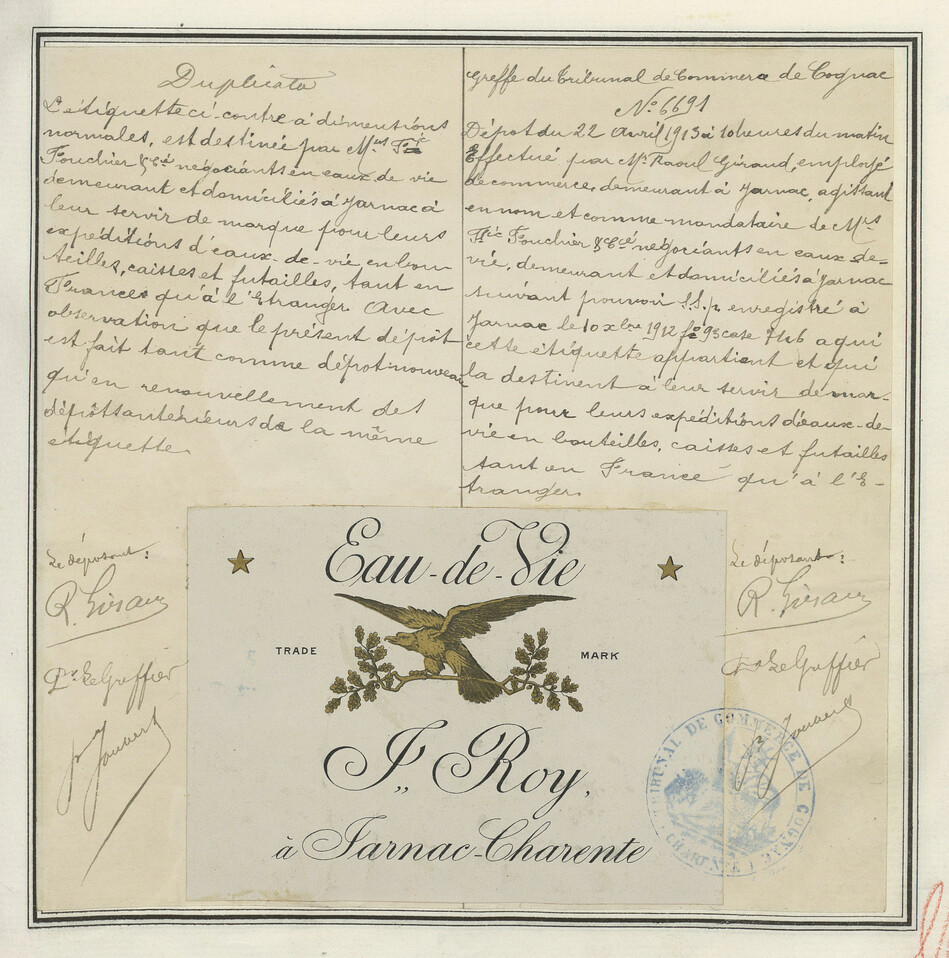 Duplicata
L'étiquette ci-contre à dimentions
normales, est destinée par Mrs Fic
Fouchier & Cie négociants en eaux-de-vie
demeurant et domiciliés à Jarnac à
leur servir de marque pour leurs
expéditions d'eaux-de-vie en bou-
teilles, caisses et futailles, tant en
France qu'à l'Etranger. Avec
observation que le présent dépôt
est fait tant comme dépot nouveau
qu'en renouvellement des
dépôts antérieurs de la même
étiquette.
Le déposant:
R. Giraud
Pr Le Greffier
Jouvert
Greffe du Tribunal de Commerce de Cognac
No 6691
Dépot du 22 Avril 1913 à 10 heures du matin
Effectué par Mr Raoul Giraud, employé
de commerce, demeurant à Jarnac, agissant
en nom et comme mandataire de Mrs
Fic Fouchier & Cie négociants en eaux-de-
vie, demeurant et domiciliés à Jarnac
suivant pouvoir S.S.p. enregistré à
Jarnac le 10 xbre 1912 fo 93 case 746 a qui
cette étiquette appartient et qui
la destinent à leur servir de mar-
que pour leurs expéditions d'eaux-de-
vie en bouteilles, caisses et futailles
tant en France qu'à l'E-
tranger.
Le déposant:
R. Giraud
Pr Le Greffier
Eau-de-Vie
TRADE MARK
J. Roy,
à Jarnac-Charente
TRIBUNAL DE COMMERCE DE COGNAC
CHARENTE